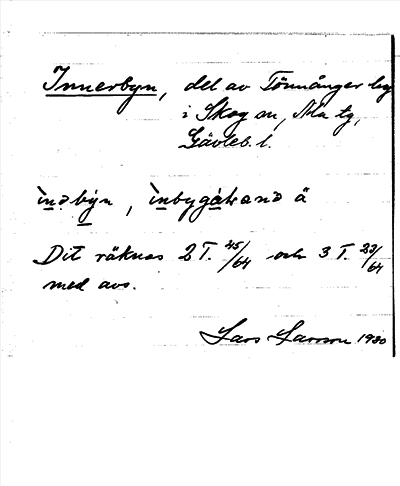 Innerbyn, del av Tönnånger by
i Skog sn, Ala tg,
Gävleb. l.
ìnəbýn, ìnbygàtrand ä
Dit räknas 2 T. 45/64 och 3 T. 23/64
med avs.
Lars Larsson 1930